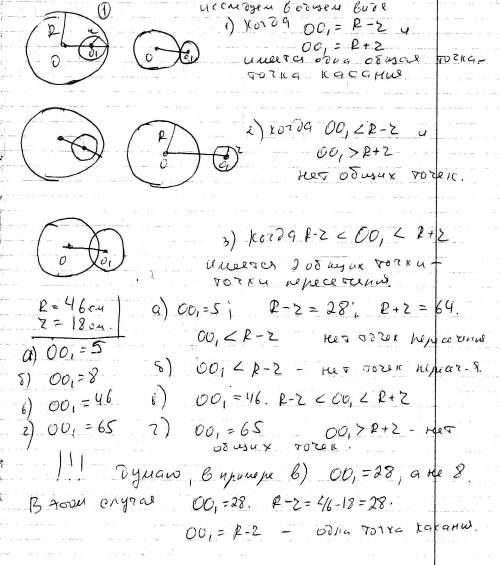 исследуем в общем виде
1) Когда OO₁ = R-r и
OO₁ = R+r
имеется одна общая точка -
точка касания
2) Когда OO₁ < R-r и
OO₁ > R+r
нет общих точек.
3) Когда R-r < OO₁ < R+r
имеется 2 общих точки -
точки пересечения.
R = 46 см
r = 18 см.
а) OO₁ = 5
б) OO₁ = 8
в) OO₁ = 46
г) OO₁ = 65
а) OO₁ = 5; R-r = 28; R+r = 64.
OO₁ < R-r нет точек пересечения
б) OO₁ < R-r - нет точек перес-я.
в) OO₁ = 46. R-r < OO₁ < R+r
г) OO₁ = 65 OO₁ > R+r - нет
общих точек.
!!! Думаю, в примере в) OO₁ = 28, а не 8.
В этом случае OO₁ = 28. R-r = 46-18 = 28.
OO₁ = R-r - одна точка касания.
1
R
r
O
O₁
O
O₁
R
O
O₁
r
O
O₁